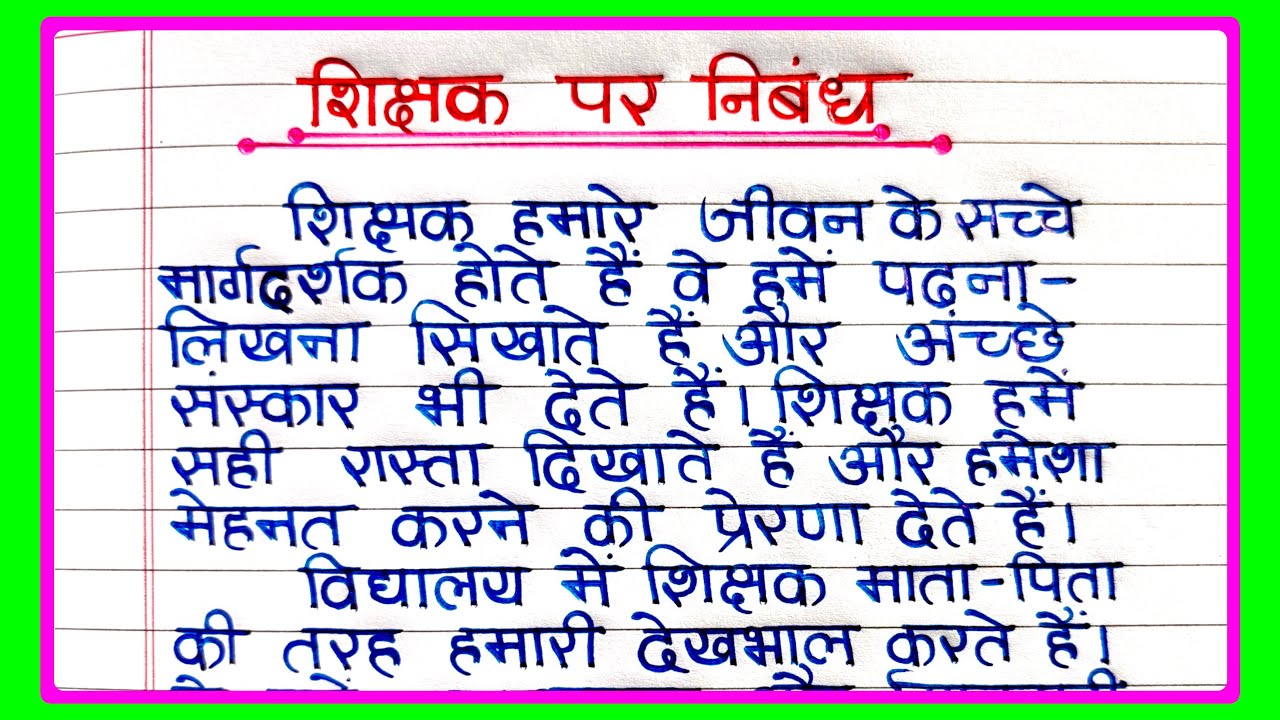 शिक्षक पर निबंध
शिक्षक हमारे जीवन के सच्चे
मार्गदर्शक होते हैं वे हमें पढ़ना-
लिखना सिखाते हैं और अच्छे
संस्कार भी देते हैं। शिक्षक हमें
सही रास्ता दिखाते हैं और हमेशा
मेहनत करने की प्रेरणा देते हैं।
विद्यालय में शिक्षक माता-पिता
की तरह हमारी देखभाल करते हैं।